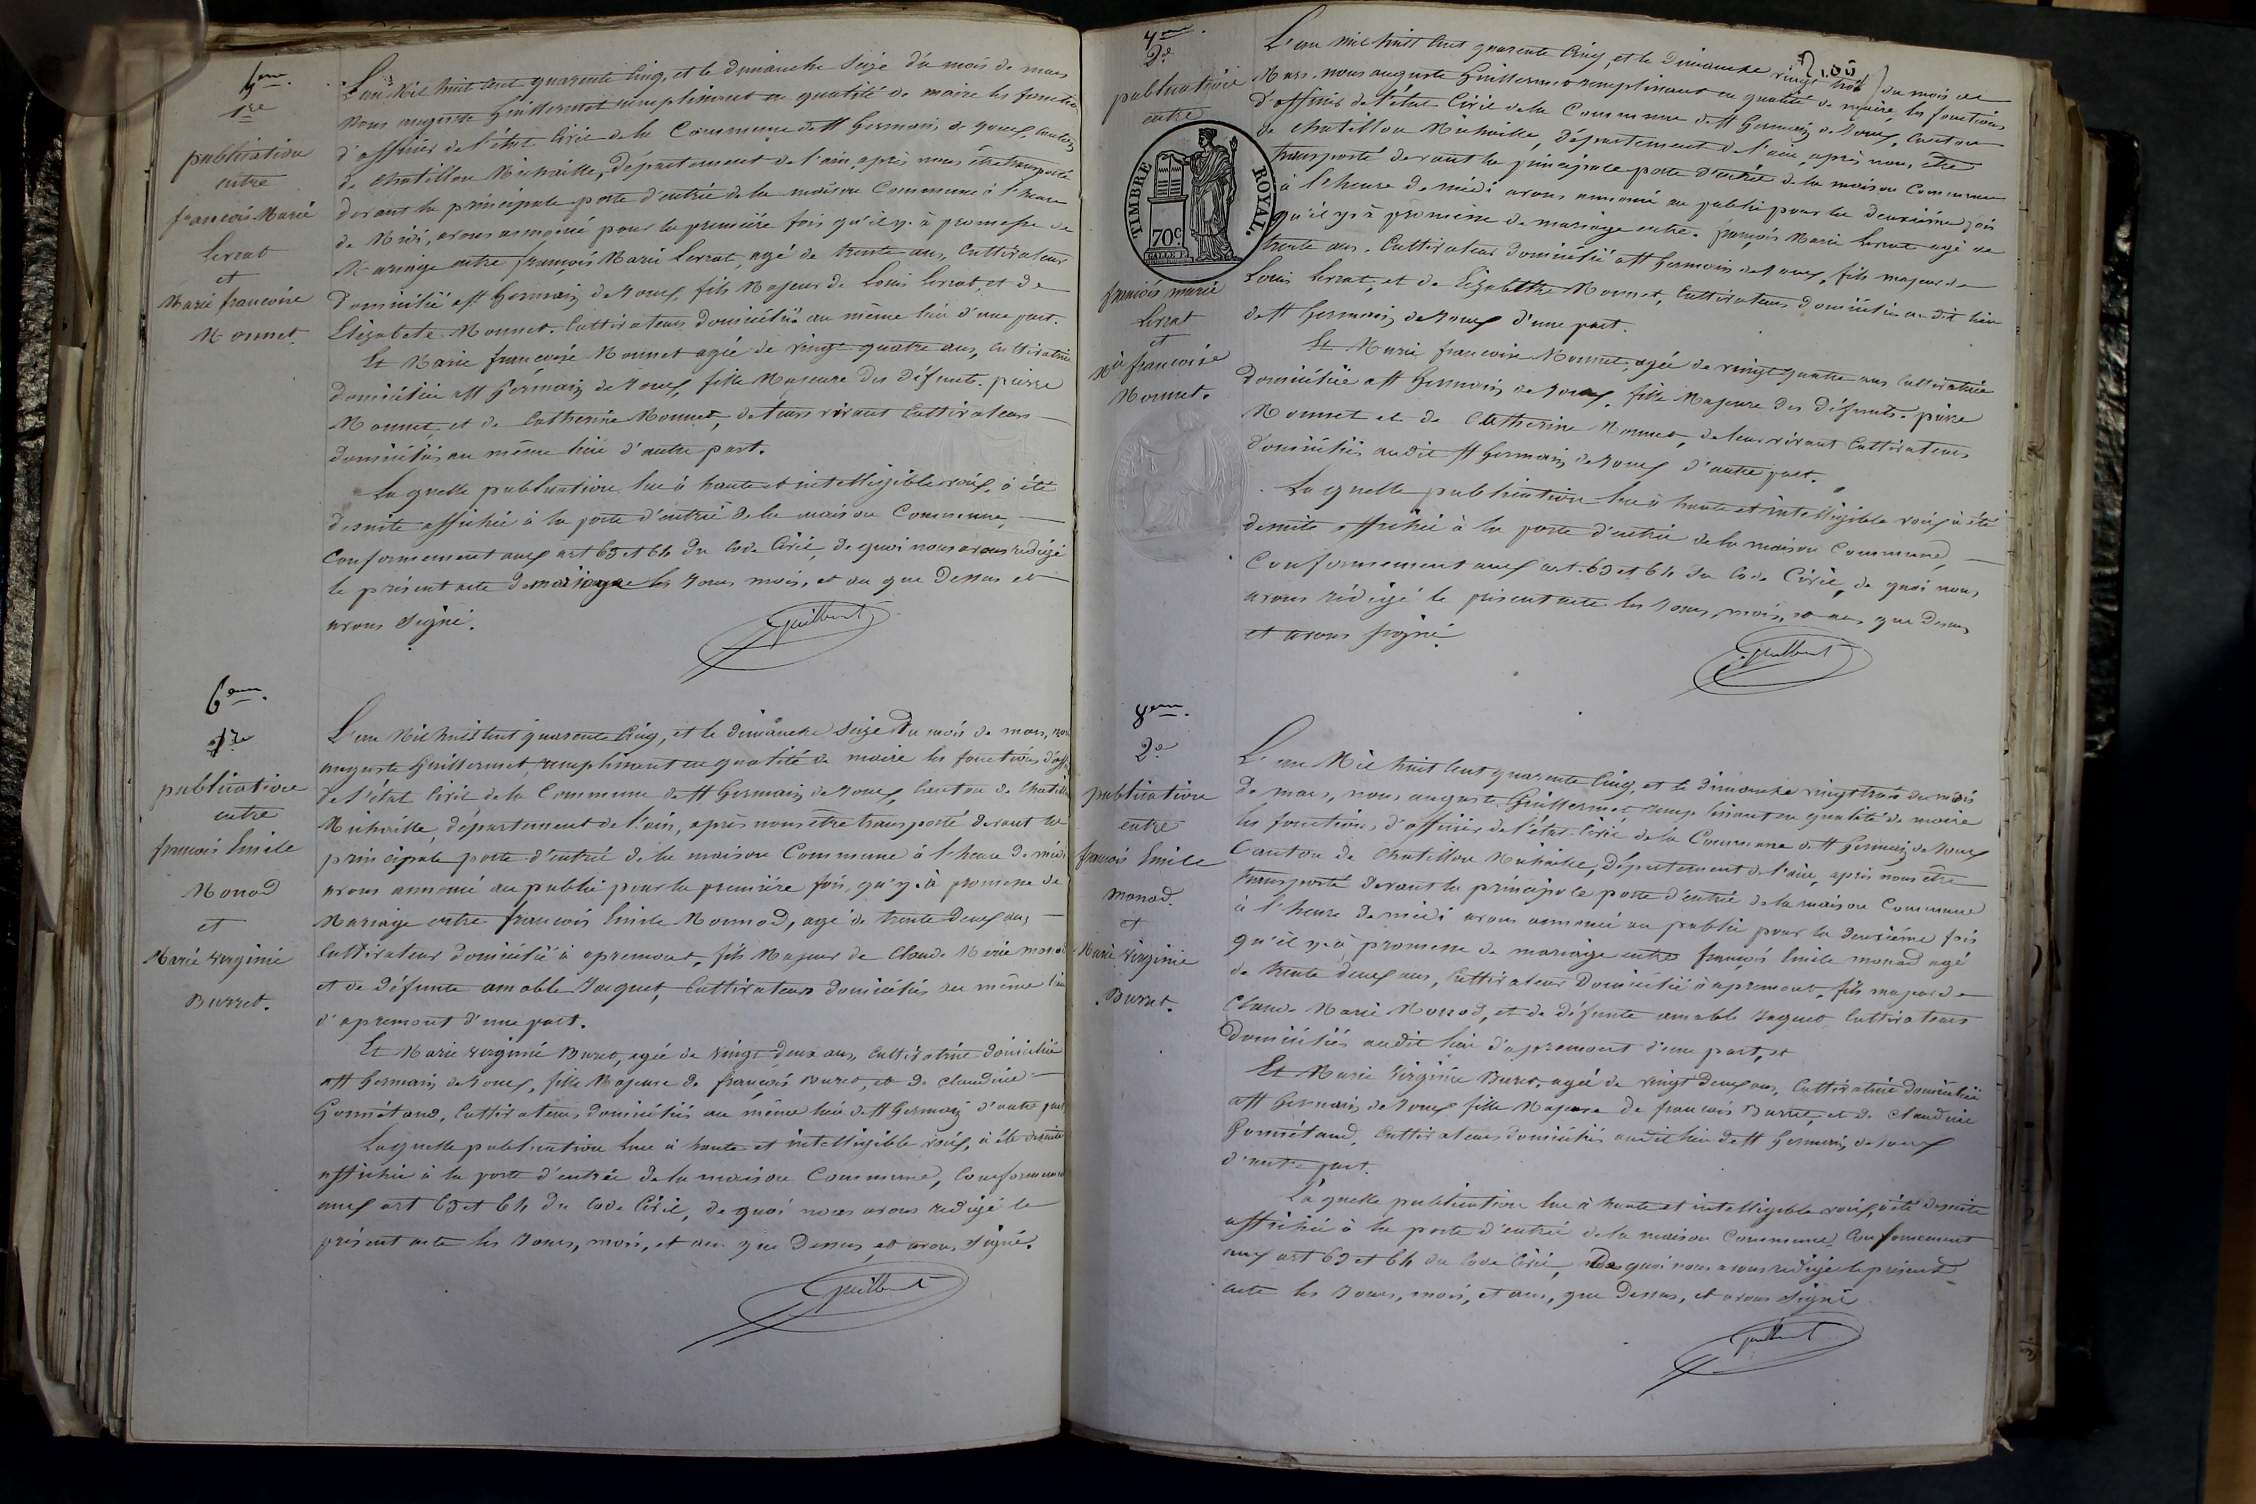 5eme.
1re
publication
entre
françois Marie
Levrat
et
Marie françoise
Monnet.
L'an Mil huit Cent quarante Cinq, et le dimanche seize du mois de mars
Nous auguste Guillermet remplissant en qualité de maire les fonctions
d'officier de l'état Civil de la Commune de St Germain de Joux, canton
de Chatillon Michaille, département de l'ain, après nous être transporté
devant la principale porte d'entrée de la maison Commune à l'heure
de Midi, avons annoncé pour la première fois qu'il y à promesse de
Mariage entre françois Marie Levrat, agé de trente ans, Cultivateur
Domicilié à St Germain de Joux, fils Majeur de Louis Levrat et de
Elizabete Monnet. Cultivateurs domiciliés au même lieu d'une part.
Et Marie françoise Monnet agée de vingt quatre ans, Cultivatrice
domiciliée à St Germain de Joux, fille Majeure des défunts. pierre
Monnet et de Catherine Monnet, de leurs vivant Cultivateurs
domiciliés au même lieu d'autre part.
La quelle publication lue à haute et intelligible voix, à été
desuite affichée à la porte d'entrée de la maison Commune,
Conformement aux art 63 et 64 du Code Civil, de quoi nous avons redigé
le présent acte de mariage les Jours mois, et an que Dessus et
avons signé.
Guillermet
6eme.
1re
publication
entre
françois Emile
Monod
et
Marie virginie
Burret.
L'an Mil huit Cent quarante Cinq, et le dimanche seize Du mois de mars, nous
auguste Guillermet, remplissant en qualité de maire les fonctions d'officier
de l'état Civil de la Commune de St Germain de Joux, Canton de Chatillon
Michaille, département de l'ain, après nous être transporté devant la
principale porte d'entrée de la maison Commune à l'heure de midi
avons annoncé au public pour la première fois, qu'y à promesse de
Mariage entre françois Emile Monnod, agé de trente Deux ans
Cultivateur domicilié à apremont, fils Majeur de Claude Marie monod
et de défunte amable Jacquet, Cultivateurs domiciliés au même lieu
d'apremont d'une part.
Et Marie virginie Buret, agée de vingt deux ans, Cultivatrice domiciliée
à St Germain de Joux, fille Majeure de françois Buret, et de claudine
Gonnétand, Cultivateurs domiciliés au même lieu de St Germain d'autre part
Laquelle publication lue à haute et intelligible voix, à été desuite
affichée à la porte d'entrée de la maison Commune, Conformement
aux art 63 et 64 du Code Civil, de quoi nous avons redigé le
présent acte les Jours, mois, et an que Dessus, et avons signé.
Guillermet
7eme.
2e
publication
entre
TIMBRE ROYAL.
70c.
françois marie
Levrat
et
Mie françoise
Monnet.
L'an Mil huit Cent quarante Cinq, et le Dimanche vingt trois du mois de
Mars. nous auguste Guillermet remplissant en qualité de maire, les fonctions
d'officier de l'état Civil de la Commune de St Germain de Joux, Canton
de Chatillon Michaille, département de l'ain, après nous être
transporté devant la principale porte d'entrée de la maison Commune
à l'heure de midi avons annoncé au public pour la deuxième fois
qu'il y à promesse de mariage entre. françois Marie Levrat agé de
trente ans, Cultivateur domicilié à St Germain de Joux, fils majeur de
Louis Levrat, et de Elizabethe Monnet, Cultivateurs domiciliés au dit lieu
de St Germain de Joux d'une part.
Et Marie françoise Monnet, agée de vingt quatre ans Cultivatrice
domiciliée à St Germain de Joux, fille Majeure des défunts. pierre
Monnet et de Catherine Monnet, de leur vivant Cultivateurs
domiciliés audit St Germain de Joux d'autre part.
La quelle publication lue à haute et intelligible voix, à été
desuite affichée à la porte d'entrée de la maison Commune,
Conformement aux art. 63 et 64 du Code Civil, de quoi nous
avons rédigé le présent acte les Jours, mois, et an que Dessus
et avons signé.
Guillermet
8eme.
2e
publication
entre
françois Emile
monod.
et
Marie virginie
Burret.
L'an Mil huit Cent quarante Cinq, et le dimanche vingt trois du mois
de mars, nous auguste Guillermet remplissant en qualité de maire
les fonctions, d'officier de l'état Civil de la Commune de St Germain de Joux
Canton de Chatillon Michaille, département de l'ain, après nous être
transporté devant la principale porte d'entrée de la maison Commune
à l'heure de midi avons annoncé au public pour la deuxième fois
qu'il y à promesse de mariage entre françois Emile monod agé
de trente deux ans, Cultivateur Domicilié à apremont, fils majeur de
Claude Marie Monod, et de défunte amable Jaquet Cultivateurs
domiciliés audit lieu d'apremont d'une part, et
Et Marie Virginie Buret, agée de vingt deux ans, Cultivatrice domiciliée
à St Germain de Joux fille Majeure de françois Burret, et de Claudine
Gonnétand, Cultivateurs domiciliés audit lieu de St Germain de Joux
d'autre part.
La quelle publication lue à haute et intelligible voix, à été desuite
affichée à la porte d'entrée de la maison Commune, Conformement
aux art 63 et 64 du Code Civil, De quoi nous avons redigé le présent
acte les Jours, mois, et an, que Dessus, et avons signé
Guillermet